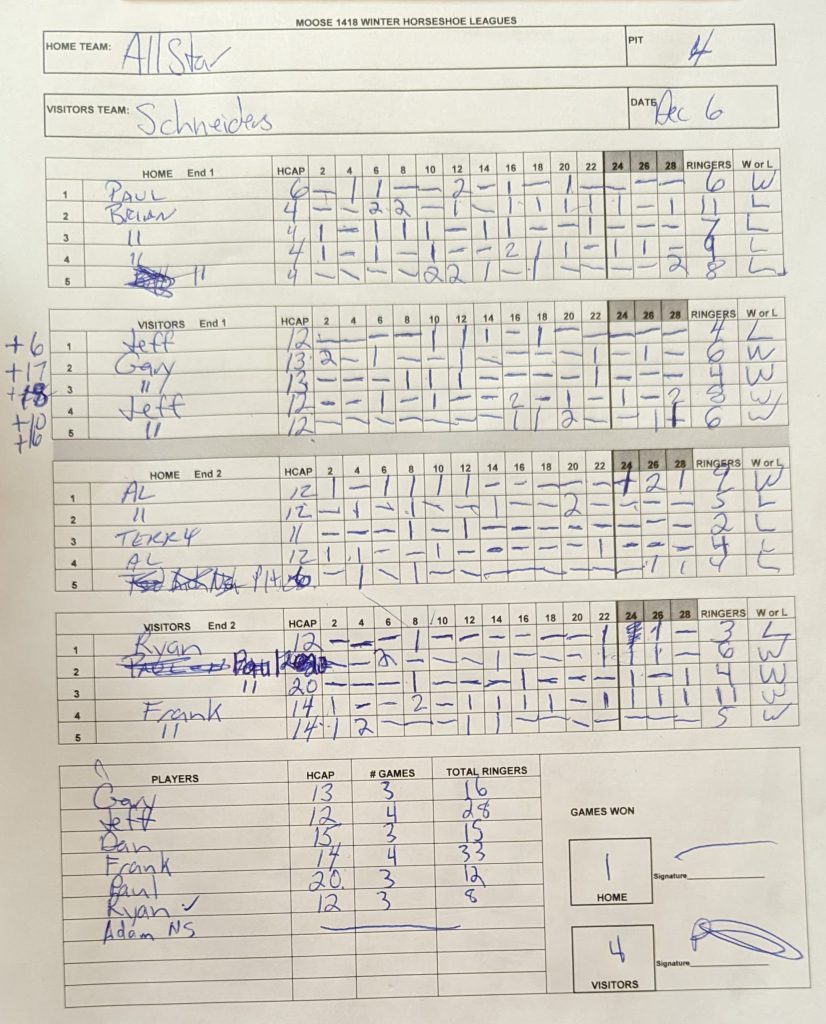 MOOSE 1418 WINTER HORSESHOE LEAGUES
HOME TEAM: All Star PIT 4
VISITORS TEAM: Schneiders DATE Dec 6
HOME End 1 HCAP 2 4 6 8 10 12 14 16 18 20 22 24 26 28 RINGERS W or L
1 PAUL 6 – 1 1 – – 2 – 1 – 1 – – – – 6 W
2 BRIAN 4 – – 2 2 – 1 – 1 1 1 1 1 – 1 11 L
3 " 4 1 – 1 1 1 – 1 1 – – 1 – – – 7 L
4 " 4 1 – 1 – 1 – – 2 1 1 – 1 1 – 9 L
5 " 4 – – – – 2 2 1 – 1 – – – – 2 8 L
VISITORS End 1 HCAP 2 4 6 8 10 12 14 16 18 20 22 24 26 28 RINGERS W or L
+6 1 Jeff 12 – – – – 1 1 1 – 1 – – – – – 4 L
+17 2 Gary 13 2 – 1 – – 1 – – – – 1 – 1 – 6 W
3 " 13 – – – 1 1 1 – – – – 1 – – – 4 W
4 Jeff 12 – – 1 – 1 – – 2 – 1 – 1 – 2 8 W
+10 5 " 12 – – – – – – – 1 1 2 – – 1 1 6 W
+16
HOME End 2 HCAP 2 4 6 8 10 12 14 16 18 20 22 24 26 28 RINGERS W or L
1 AL 12 1 – 1 1 1 1 – – – – – 1 2 1 9 W
2 " 12 – 1 – 1 – – 1 – – 2 – – – – 5 L
3 TERRY 11 – – – 1 – 1 – – – – – – – – 2 L
4 AL 12 1 1 – – 1 – – – – – 1 – – – 4 L
5 – 1 – 1 – – – – – – – – 1 1 4 L
VISITORS End 2 HCAP 2 4 6 8 10 12 14 16 18 20 22 24 26 28 RINGERS W or L
1 Ryan 12 – – – 1 – – – – – – 1 1 – 3 L
2 Paul 20 – – 2 – – – 1 – – – 1 1 1 – 6 W
3 " 20 – – – 1 – – – 1 – – – 1 – 1 4 W
4 Frank 14 1 – – 2 – 1 1 1 1 – 1 1 1 1 11 W
5 " 14 1 2 – – – 1 1 – – – – – – – 5 W
PLAYERS HCAP # GAMES TOTAL RINGERS
Gary 13 3 16
Jeff 12 4 28
Dan 15 3 15
Frank 14 4 33
Paul 20 3 12
Ryan ✓ 12 3 8
Adam NS
GAMES WON
1
HOME
Signature
4
VISITORS
Signature